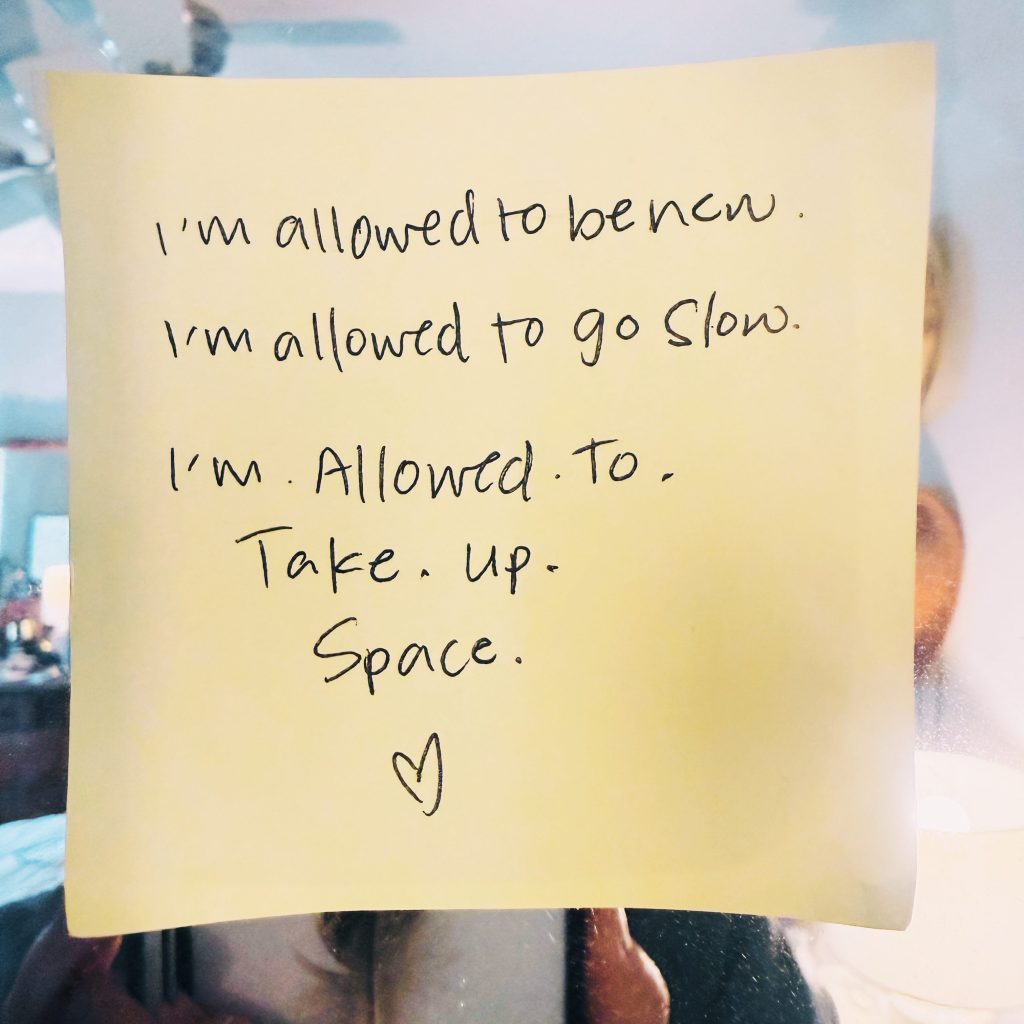 I'm allowed to be new.
I'm allowed to go slow.
I'm. Allowed. To.
Take. up.
Space.